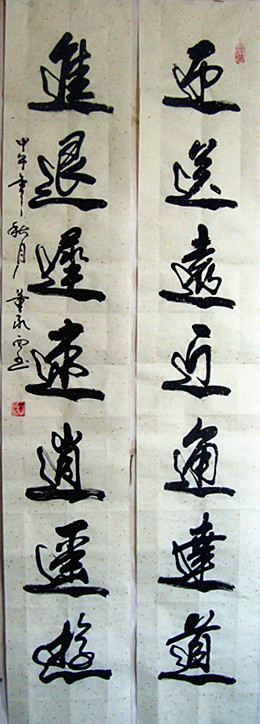 迎送遠近通達道
進退遲速逍遙遊
甲午年秋月